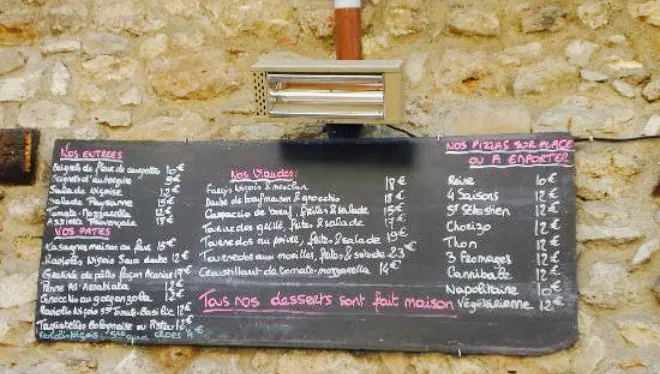 Nos Entrees
Beignets de fleurs de courgettes 10€
aubergine 8€
Salade Niçoise 12€
Salade Paysanne 15€
Tomate-Mozzarella 12€
Assiette Provençale 18€
Vos Pates
Lasagnes maison au four 15€
Raviolis Niçois Sauce daube 12€
de pâtes façon 17€
Penne All Arrabiata 12€
Gnocchis au gorgonzola 12€
Raviolis Niçois Tomate-Basilic 12€
Tagliatelles Bolognaise ou Pistou 12€
4€
Nos Viandes:
Farcis Niçois & mesclun 18€
Daube de boeuf maison & gnocchis 18€
Carpaccio de boeuf, frites & salade 15€
Tournedos grillé, frites & salade 17€
Tournedos au poivre, frites & salade 19€
Tournedos aux morilles, frites & salade 23€
Croustillant de tomate-mozzarella 14€
Tous nos desserts sont fait maison
Nos Pizzas sur place
ou a emporter
Reine 10€
4 Saisons 12€
St Sébastien 12€
Chorizo 12€
Thon 12€
3 Fromages 12€
Cannibale 12€
Napolitaine 10€
Végétarienne 12€